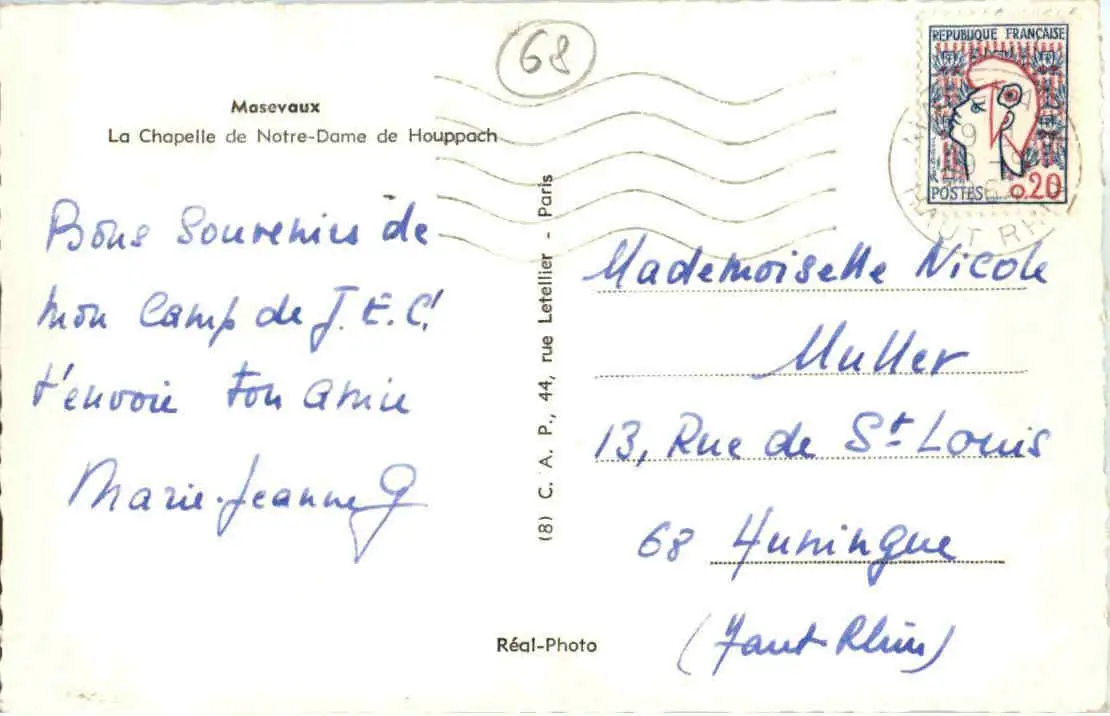 68
Masevaux
La Chapelle de Notre-Dame de Houppach
Bons Souvenirs de
mon Camp de J.E.C!
t'envoie Ton Amie
Marie-Jeanne G
(8) C. A. P., 44, rue Letellier - Paris
Réal-Photo
REPUBLIQUE FRANÇAISE
POSTES 0.20
HAUT RHIN
Mademoiselle Nicole
Muller
13, Rue de St Louis
68 Huningue
(Haut-Rhin)